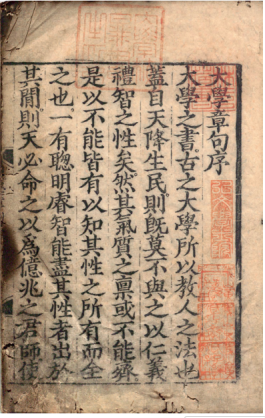 大學章句序
大學之書古之大學所以教人之法也
蓋自天降生民則旣莫不與之以仁義
禮智之性矣然其氣質之禀或不能齊
是以不能皆有以知其性之所有而全
之也一有聰明睿智能盡其性者出於
其閒則天必命之以爲億兆之君師使